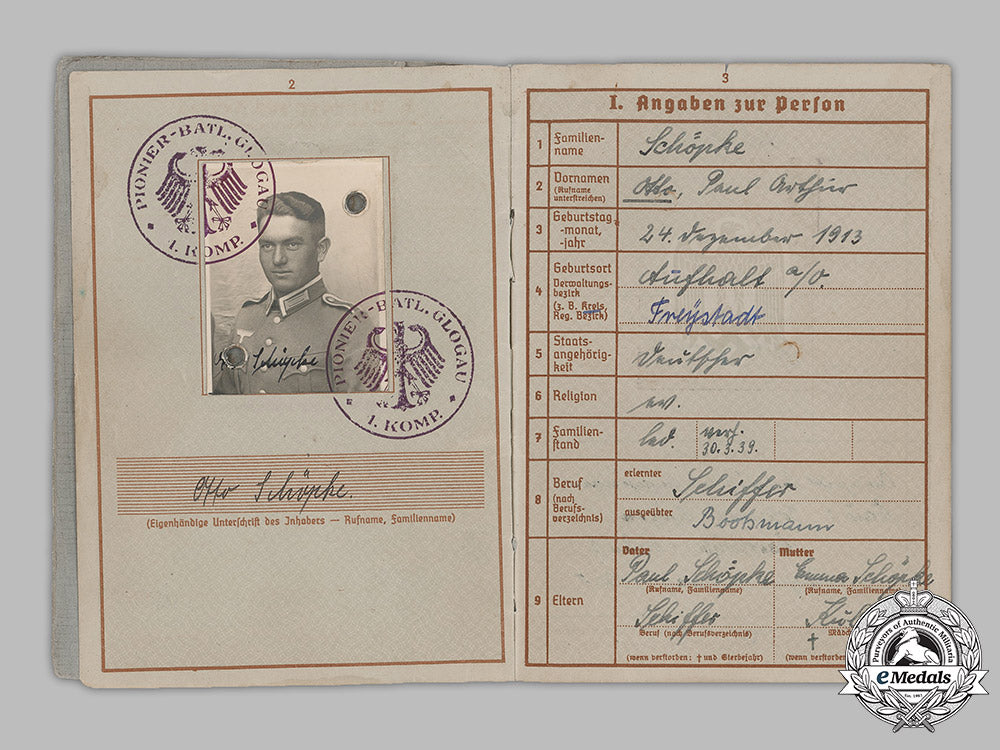 2
PIONIER-BATL. GLOGAU
1. KOMP.
Schöpke
PIONIER-BATL. GLOGAU
1. KOMP.
Otto Schöpke.
(Eigenhändige Unterschrift des Inhabers — Rufname, Familienname)
3
I. Angaben zur Person
1 Familien-
name
Schöpke
2 Vornamen
(Rufname
unterstreichen)
Otto, Paul Arthur
3 Geburtstag
-monat,
-jahr
24. Dezember 1913
4 Geburtsort
Verwaltungs-
bezirk
(z. B. Kreis,
Reg. Bezirk)
Aufhalt a/O.
Freystadt
5 Staats-
angehörig-
keit
Deutscher
6 Religion
ev.
7 Familien-
stand
led.
verh.
30.3.39.
8 Beruf
(nach
Berufs-
verzeichnis)
erlernter
Schiffer
ausgeübter
Bootsmann
9 Eltern
Vater
Paul Schöpke
(Rufname, Familienname)
Schiffer
Beruf (nach Berufsverzeichnis)
(wenn verstorben: † und Sterbejahr)
Mutter
Emma Schöpke
(Rufname, Familienname)
†
(wenn verstorben
Purveyors of Authentic Militaria
eMedals